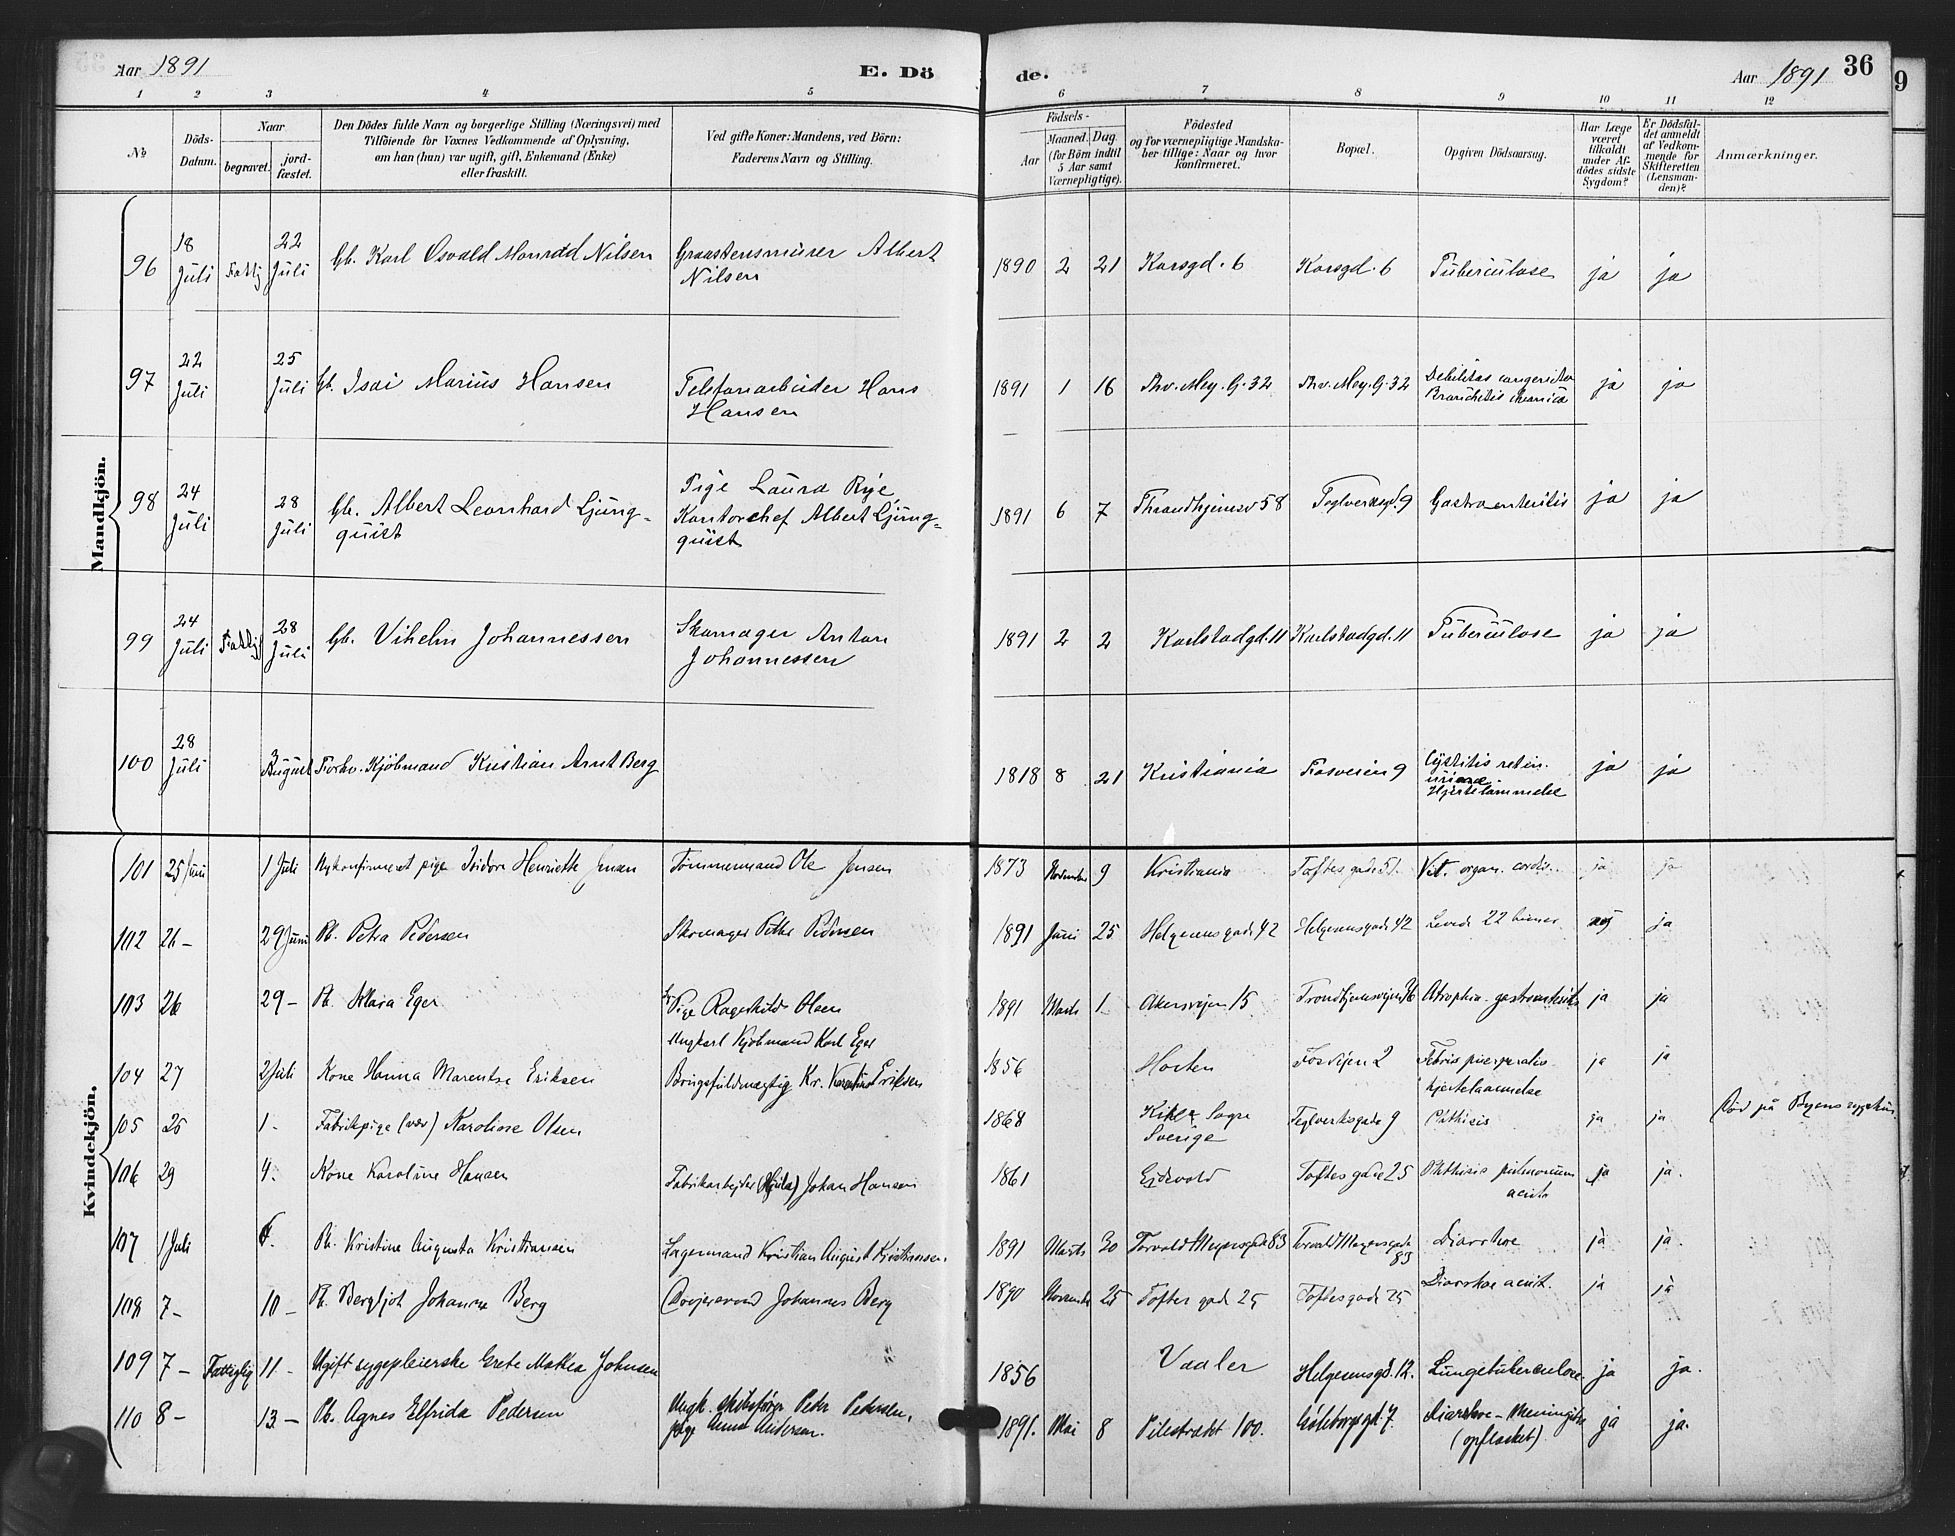 Aar 1891
E. Dö
de.
Aar 1891
36
9
1 2 3 4 5 6 7 8 9 10 11 12
№
Döds-
Datum.
Naar
begravet.
jord-
fæstet.
Den Dödes fulde Navn og borgerlige Stilling (Næringsvei) med
Tilföiende for Voxnes Vedkommende af Oplysning,
om han (hun) var ugift, gift, Enkemand (Enke)
eller fraskilt.
Ved gifte Koner: Mandens, ved Börn:
Faderens Navn og Stilling.
Födsels-
Aar
Maaned.
Dag.
(for Börn indtil
5 Aar samt
Værnepligtige).
Födested
og for værnepligtige Mandska-
ber tillige: Naar og hvor
konfirmeret.
Bopæl.
Opgiven Dödsaarsag.
Har Læge
været
tilkaldt
under Af-
dödes sidste
Sygdom?
Er Dödsfal-
det anmeldt
af Vedkom-
mende for
Skifteretten
(Lensman-
den)?
Anmærkninger.
Mandkjön.
96 18 Juli 22 Juli Gb. Karl Osvald Monrad Nilsen Graastensmurer Albert
Nilsen
1890 2 21 Korsgd. 6 Korsgd. 6 Tuberculose ja ja
97 22 Juli 25 Juli Gb. Isai Marius Hansen Telefonarbeider Hans
Hansen
1891 1 16 Thv. Mey. G. 32 Thv. Mey. G. 32 Debilitas
ja ja
98 24 Juli 28 Juli Gb. Albert Leonhard Ljung-
quist
Pige Laura Rye,
Kontorchef Albert Ljung-
quist
1891 6 7 Throndhjemsv 58 Teglverksgd. 9 Gastroenteritis ja ja
99 24 Juli Fattig 28 Juli Gb. Vilhelm Johannessen Skomager Anton
Johannessen
1891 2 2 Karlstadgd. 11 Karlstadgd. 11 Tuberculose ja ja
100 28 Juli August Forhv. Kjöbmand Kristian Arnt Berg
1818 8 21 Kristiania Fosveien 9 Cystitis reten.
urinæ
Hjertelammelse
ja ja
Kvindekjön.
101 25 Juni 1 Juli Nykonfirmeret pige Isidora Henriette Jensen Tömmermand Ole Jensen
1873 November 9 Kristiania Toftes gade 51. Vit. organ. cordis. ja ja
102 26 – 29 Juni Pb. Petra Pedersen Skomager Petter Pedersen
1891 Juni 25 Helgesens gade 42 Helgesensgade 42 Levede 22 timer nej ja
103 26 29 – Pb. Klara Eger Pige Ragnhild Olsen
Ungkarl Kjöbmand Karl Eger
1891 Marts 1 Akersvejen 15 Trondhjemsvejen 36 Atrophia. gastroenteritis ja ja
104 27 2 Juli Kone Hanna Marentse Eriksen Brugsfuldmægtig Kr. Eriksen
1856 Horten Fosvejen 2 Febris puerperalis
hjertelammelse
ja ja
105 25 1 – Fabrikpige Karoline Olsen
1868 Sogn
Sverige
Teglverksgade 9 Phthisis ja ja. Död på Byens sygehus
106 29 4. Kone Karoline Hansen Fabrikarbejder Johan Hansen
1861 Ejdsvold Toftes gade 25 Phthisis pulmonum
acuta
ja ja.
107 1 Juli 6. Pb. Kristine Augusta Kristiansen Lagermand Kristian August Kristiansen.
1891 Marts 30 Torvald Meyersgade 83 Torvald Meyersgade
83
Diarrhoe ja ja.
108 7 – 10 – Pb. Bergljot Johanne Berg Johannes Berg
1890 November 25 Toftes gade 25 Toftesgade 25 Diarrhoe acut. ja ja
109 7 – Fattiglig 11 – Ugift sygepleierske Grete Mathea Johnsen
1856 Vaaler Helgesensgd. 12. Lungetuberculose ja ja.
110 8 – 13 – Pb. Agnes Elfrida Pedersen Ungk. skibsförer Peter Pedersen,
pige Anna Andersen.
1891. Mai 8 Pilestrædet 100. Göteborgsgd. 7. Diarrhoe – Meningitis
(opflasket)
ja ja.